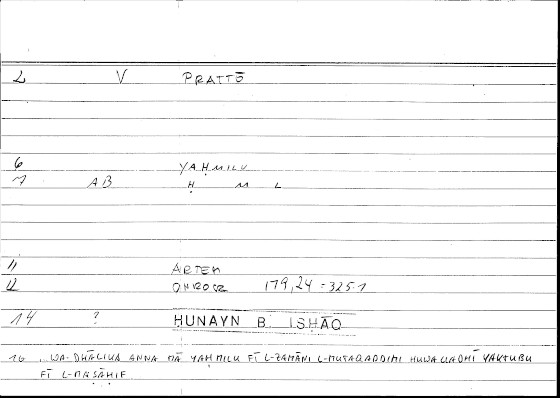 2 V PRATTŌ
6 YAḤMILU
7 AB Ḥ M L
11 ARTEM
12 ONIROCR 179,24 = 325.1
14 ? ḤUNAYN B. ISḤĀQ
16 . WA-DHĀLIKA ANNA MĀ YAḤMILU FĪ L-ZAMĀNI L-MUTAQADDIMI HUWA LLADHĪ YAKTUBU
FĪ L-MAṢĀḤIF